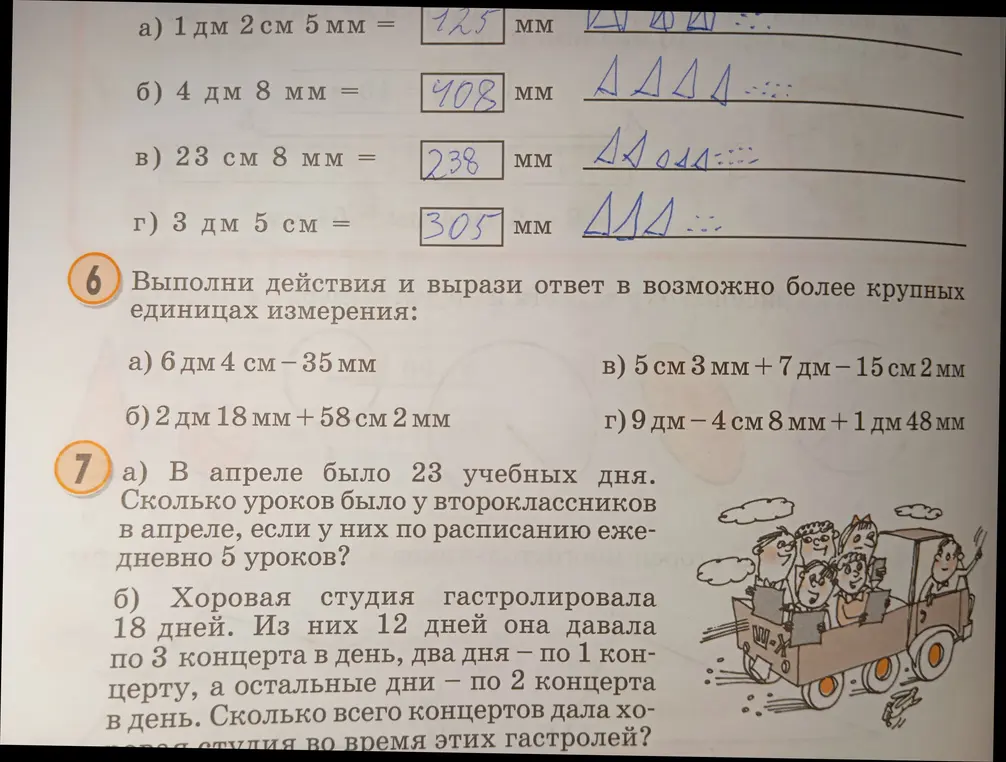 а) 1 дм 2 см 5 мм = 125 мм
б) 4 дм 8 мм = 408 мм
в) 23 см 8 мм = 238 мм
г) 3 дм 5 см = 305 мм
6 Выполни действия и вырази ответ в возможно более крупных
единицах измерения:
а) 6 дм 4 см – 35 мм
в) 5 см 3 мм + 7 дм – 15 см 2 мм
б) 2 дм 18 мм + 58 см 2 мм
г) 9 дм – 4 см 8 мм + 1 дм 48 мм
7 а) В апреле было 23 учебных дня.
Сколько уроков было у второклассников
в апреле, если у них по расписанию еже-
дневно 5 уроков?
б) Хоровая студия гастролировала
18 дней. Из них 12 дней она давала
по 3 концерта в день, два дня – по 1 кон-
церту, а остальные дни – по 2 концерта
в день. Сколько всего концертов дала хо-
ровая студия во время этих гастролей?
Ш-Х